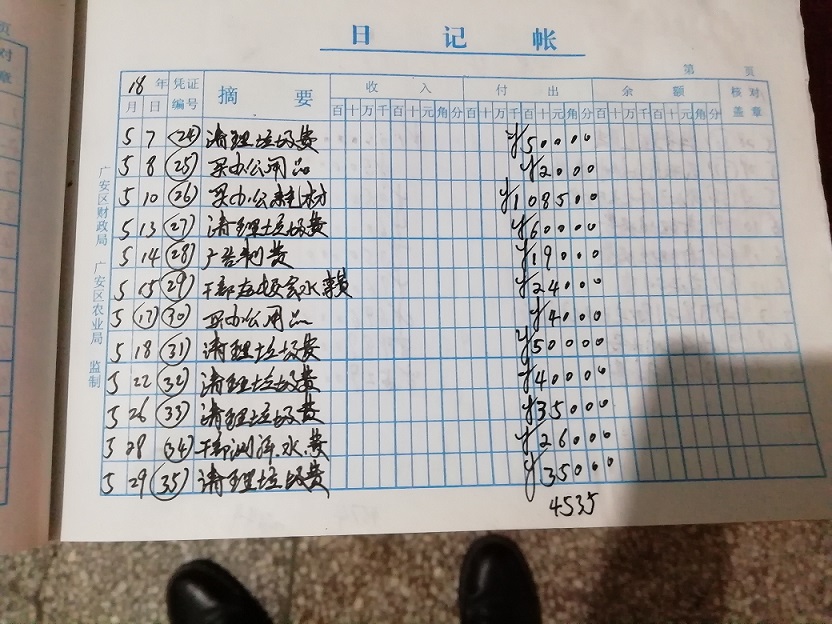 日记帐
第 页
18年 凭证编号 摘要 收入 付出 余额 核对盖章
月 日 百十万千百十元角分 百十万千百十元角分 百十万千百十元角分
5 7 (24) 清理垃圾费 ¥50000
5 8 (25) 买办公用品 ¥2000
5 10 (26) 买办公耗材 ¥108500
5 13 (27) 清理垃圾费 ¥60000
5 14 (28) 广告制费 ¥19000
5 15 (29) 干部 水费 ¥24000
5 (17) (30) 买办公用品 ¥4000
5 18 (31) 清理垃圾费 ¥50000
5 22 (32) 清理垃圾费 ¥40000
5 26 (33) 清理垃圾费 ¥35000
5 28 (34) 干部 水费 ¥26000
5 29 (35) 清理垃圾费 ¥35000
4535
广安区财政局 广安区农业局 监制
页
对
章